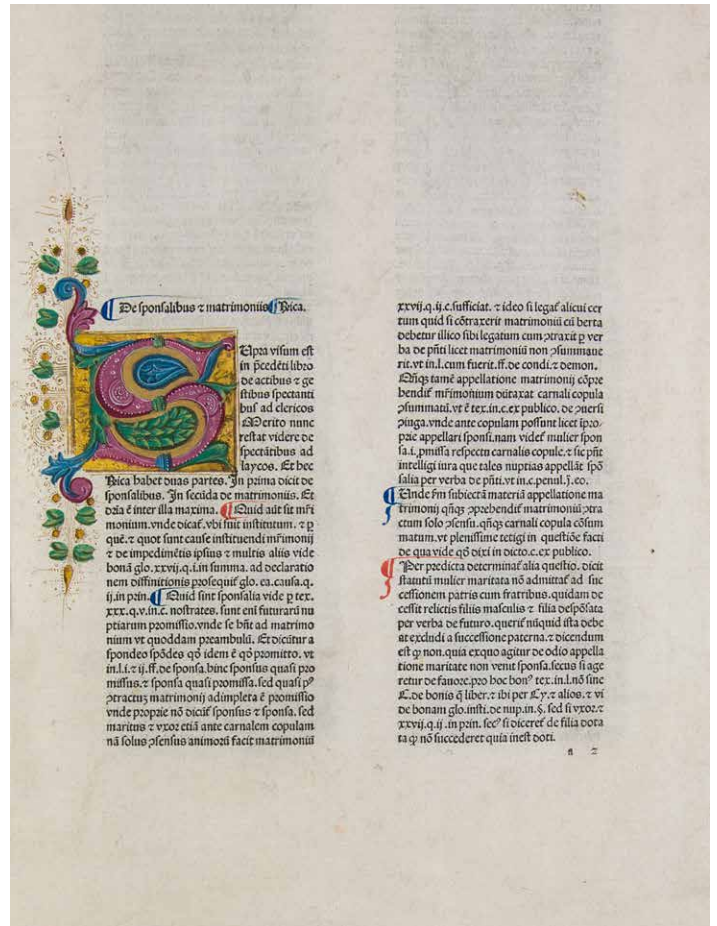 De sponsalibus ⁊ matrimoniis Rica.
SUpra visum est
in p̄cedēti libro
de actibus ⁊ ge
stibus spectanti
bus ad clericos
Merito nunc
restat videre de
spectātibus ad
laycos. Et hec
Rica habet duas partes. In prima dicit de
sponsalibus. In secūda de matrimoniis. Et
dr̄ia ē inter illa maxima. Quid aūt sit mr̄i
monium. vnde dicat᷑. vbi fuit institutum. ⁊ ꝑ
quē. ⁊ quot sunt cause instituendi mr̄imonij
⁊ de impedimētis ipsius ⁊ multis aliis vide
bonā glo. xxvij. q. i. in summa. ad declaratio
nem diffinitionis prosequit᷑ glo. ea. causa. q.
ij. in prin. Quid sint sponsalia vide ꝑ tex.
xxx. q. v. in. c. nostrates. sunt eni᷑ futurarū nu
ptiarum promissio. vnde se hn̄t ad matrimo
nium vt quoddam preambulū. Et dicūtur a
spondeo spōdes qd̄ idem ē qd̄ promitto. vt
in. l. i. ⁊ ij. ff. de sponsa. hinc sponsus quasi pro
missus. ⁊ sponsa quasi promissa. sed quasi pꝰ
ↄtractuʒ matrimonij adimpleta ē promissio
vnde proprie nō dicit᷑ sponsus ⁊ sponsa. sed
maritus ⁊ vxor etiā ante carnalem copulam
nā solus ↄsensus animorū facit matrimoniū
xxvij. q. ij. c. sufficiat. ⁊ ideo si legat᷑ alicui cer
tum quid si cōtraxerit matrimoniū cū berta
debetur illico sibi legatum cum ↄtraxit ꝑ ver
ba de pn̄ti licet matrimoniū non ↄsummaue
rit. vt in. l. cum fuerit. ff. de condi. ⁊ demon.
Qn̄qꝫ tamē appellatione matrimonij cōpre
hendit᷑ mr̄imonium dūtaxat carnali copula
ↄsummatū. vt ē tex. in. c. ex publico. de ↄuersi
ↄiuga. vnde ante copulam possunt licet īpro-
prie appellari sponsi. nam videt᷑ mulier spon
sa. i. ꝓmissa respectu carnalis copule. ⁊ sic pn̄t
intelligi iura que tales nuptias appellāt spō
salia per verba de pn̄ti. vt in. c. penul. j. eo.
Unde fm subiectā materiā appellatione ma
trimonij qn̄qꝫ ↄprehendit᷑ matrimoniū ↄtra
ctum solo ↄsensu. qn̄qꝫ carnali copula cōsum
matum. vt plenissime tetigi in questiōe facti
de qua vide qd̄ dixi in dicto. c. ex publico.
Per predicta determinat᷑ alia questio. dicit
statutū mulier maritata nō admittat᷑ ad suc
cessionem patris cum fratribus. quidam de
cessit relictis filiis masculis ⁊ filia despōsata
per verba de futuro. querit᷑ nūquid ista debe
at excludi a successione paterna. ⁊ dicendum
est ꝙ non. quia exquo agitur de odio appella
tione maritate non venit sponsa. secus si age
retur de fauore. pro hoc bonꝰ tex. in. l. nō sine
C. de bonis q̄ liber. ⁊ ibi per Cy. ⁊ alios. ⁊ vi
de bonam glo. insti. de nup. in. §. sed si vxor. ⁊
xxvij. q. ij. in prin. secꝰ si diceret᷑ de filia dota
ta ꝙ nō succederet quia inest doti.
a 2